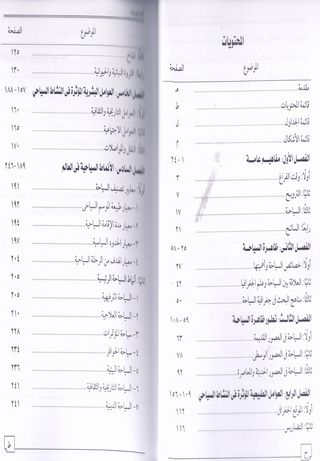 المحتويات
الموضوع الصفحة
مقدمة هـ
قائمة المحتويات ط
قائمة الجداول ل
قائمة الأشكال م
الفصل الأول: مفاهيم عامة ١-٢٤
أولًا: وقت الفراغ ٣
ثانيًا: الترويح ٧
ثالثًا: السياحة ١٧
رابعًا: السائح ٢١
الفصل الثاني: ظاهرة السياحة ٢٥-٥٨
أولًا: خصائص السياحة وأهميتها ٢٧
ثانيًا: العلاقة بين السياحة وعلم الجغرافيا ٤٢
ثالثًا: مناهج البحث في جغرافية السياحة ٥٠
الفصل الثالث: تطور ظاهرة السياحة ٥٩-١٠٨
أولًا: السياحة في العصور القديمة ٦٣
ثانيًا: السياحة في العصور الوسطى ٧٨
ثالثًا: السياحة في العصور الحديثة والمعاصرة ٩٢
الفصل الرابع: العوامل الطبيعية المؤثرة في النشاط السياحي ١٠٩-١٥٦
أولًا: الموقع الجغرافي ١١٢
ثانيًا: التضاريس ١١٦
ح
الموضوع الصفحة
ثالثًا: المناخ ١٢٥
رابعًا: الثروة النباتية والحيوانية ١٣٠
الفصل الخامس: العوامل البشرية المؤثرة في النشاط السياحي ١٥٧-١٨٨
أولًا: العوامل التاريخية والثقافية ١٦٠
ثانيًا: العوامل الاجتماعية ١٦٥
ثالثًا: النقل والمواصلات ١٧٠
الفصل السادس: الأنماط السياحية في العالم ١٨٩-٢٤٦
أولًا: معايير تصنيف السياحة ١٩١
١- معيار طبيعة الموسم السياحي ١٩٢
٢- معيار مدة الإقامة السياحية ١٩٤
٣- معيار الحدود السياسية ١٩٧
٤- معيار الهدف من الرحلة السياحية ٢٠٤
ثانيًا: أنماط السياحة الرئيسية ٢٠٥
١- السياحة الترفيهية ٢٠٥
٢- السياحة العلاجية ٢١٠
٣- سياحة المؤتمرات ٢٢٨
٤- سياحة الحوافز ٢٣٤
٥- السياحة البيئية ٢٣٦
٦- السياحة التاريخية والثقافية ٢٤١
٧- السياحة الدينية ٢٤١
ط